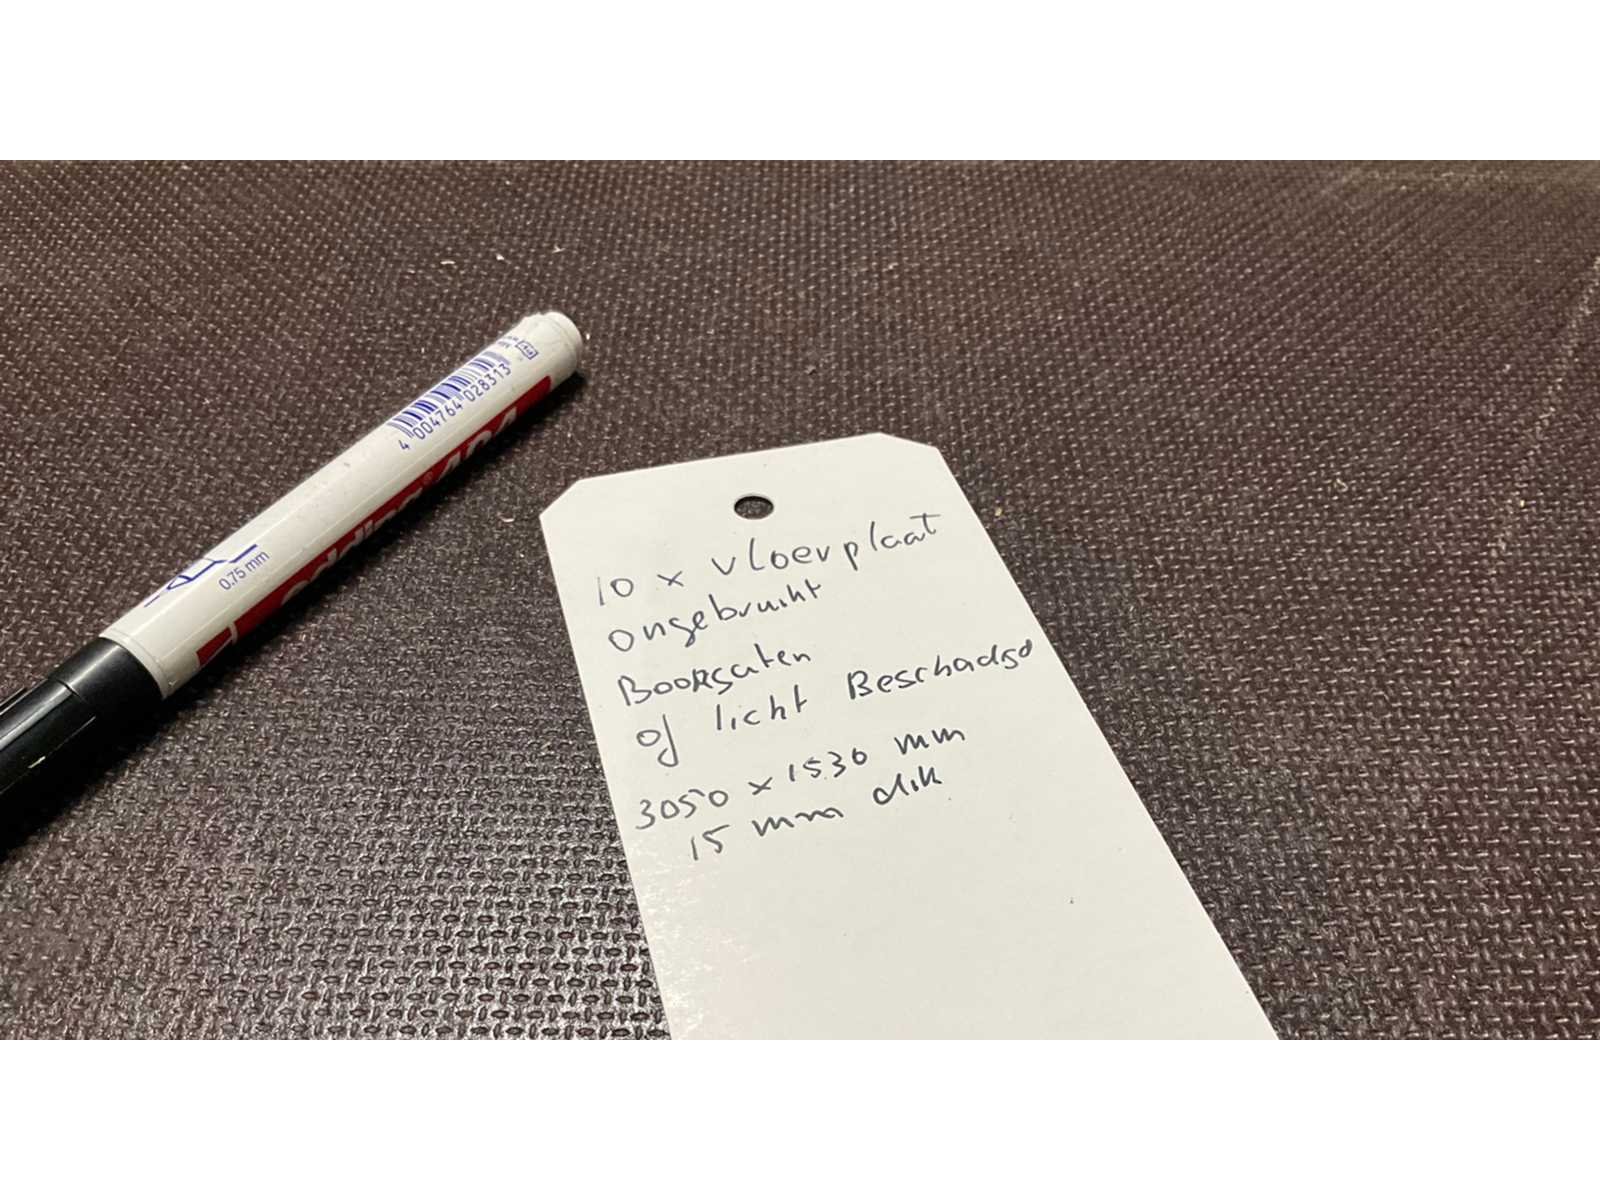 4 004764 028313
edding® 404
0.75 mm
10 x vloerplaat
ongebruikt
Boorgaten
of licht Beschadgd
3050 x 1530 mm
15 mm dik